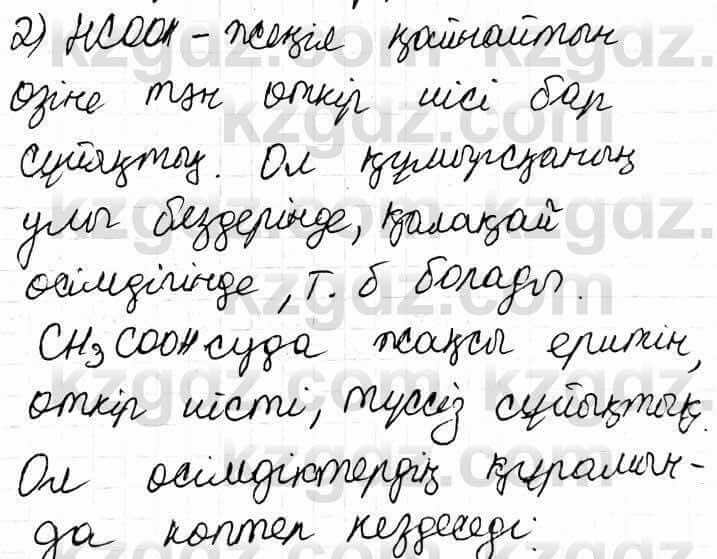 2) HCOOH - жеңіл қайнайтын
өзіне тән өткір иісі бар
сұйықтық. Ол құмырсқаның
улы бездерінде, қалақай
өсімдігінде, т. б болады.
CH₃COOH суда жақсы еритін,
өткір иісті, түссіз сұйықтық.
Ол өсімдіктердің құрамын-
да көптеп кездеседі.
kzgdz.com